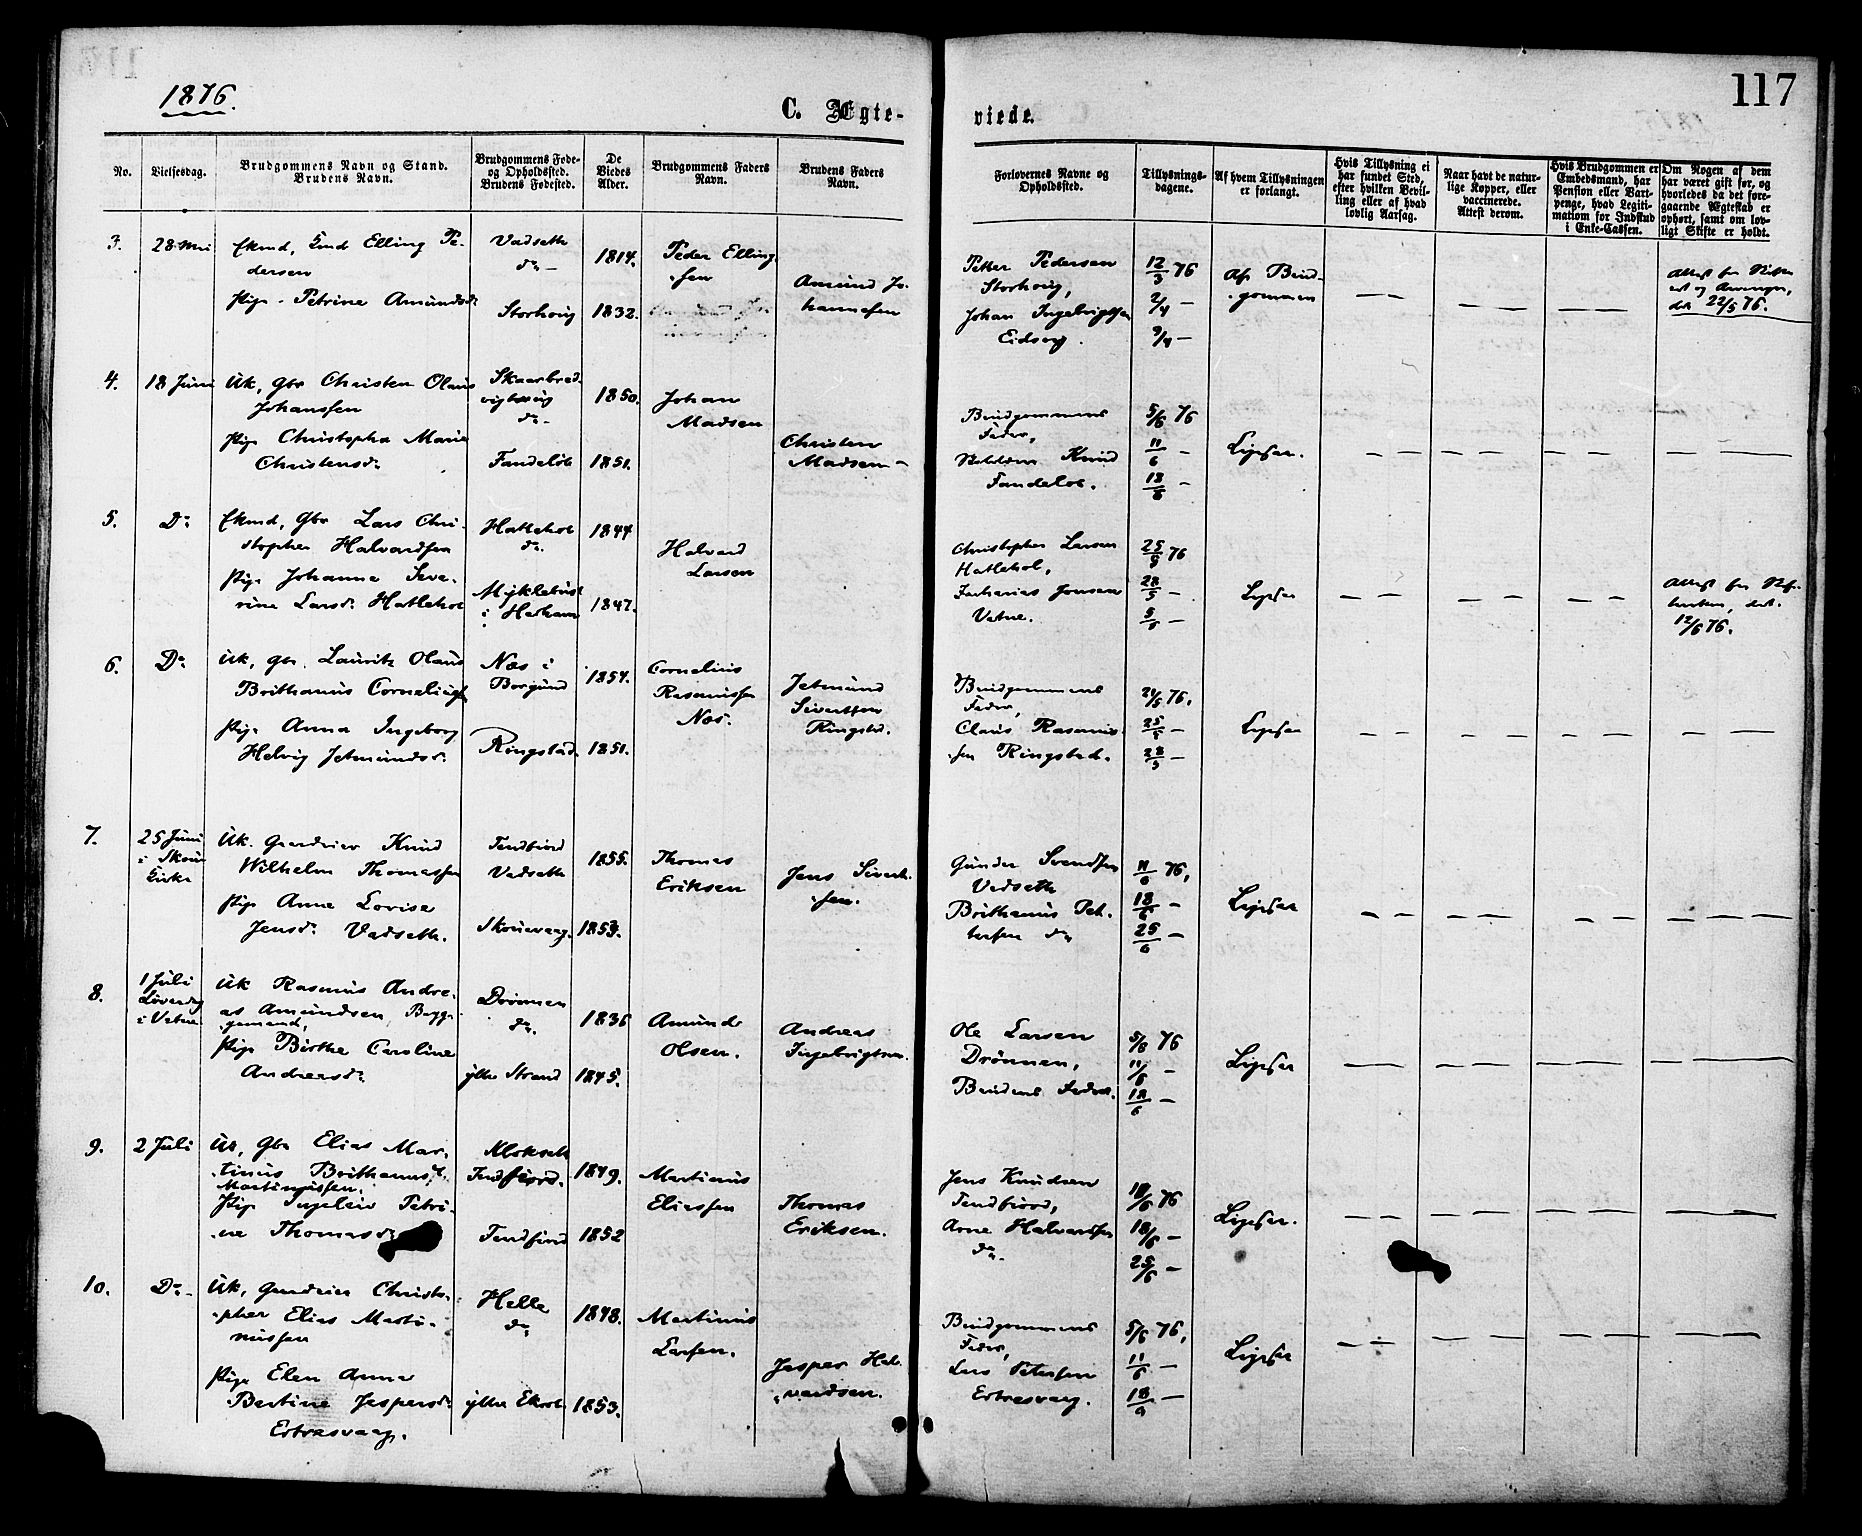 1876.
C. Ægte-
viede.
117
No.
Vielsesdag.
Brudgommens Navn og Stand.
Brudens Navn.
Brudgommens Føde-
og Opholdssted.
Brudens Fødested.
De
Viedes
Alder.
Brudgommens Faders
Navn.
Brudens Faders
Navn.
Forlovernes Navne og
Opholdssted.
Tillysnings-
dagene.
Af hvem Tillysningen
er forlangt.
Hvis Tillysning ei
har fundet Sted,
efter hvilken Bevil-
ling eller af hvad
lovlig Aarsag.
Naar havt de natur-
lige Kopper, eller
vaccinerede.
Attest derom.
Hvis Brudgommen er
Embedsmand, har
Pension eller Vart-
penge, hvad Legiti-
mation for Indskud
i Enke-Cassen.
Om Nogen af dem
har været gift før, og
hvorledes da det fore-
gaaende Ægteskab er
ophørt, samt om lov-
ligt Skifte er holdt.
3.
28 Mai
Ekmd, Gmd Elling Pe-
dersen
Pige Petrine Amundsdr
Vadseth
do –
Storhoug
1814.
1832.
Peder Elling-
sen
Amund Jo-
hannesen
Petter Pedersen
Storhoug,
Johan Ingebrigtsen
Eidsvig.
12/3 76
2/4 –
9/4 –
Af Brud-
gommen
22/5 76.
4.
18 Juni
Uk, Gbr Christen Olaus
Johanssen
Pige Christopha Marie
Christensdr
do –
Fandeløb
1850.
1851.
Johan
Madsen
Christen
Madsen –
Brudgommens
Fader,
Knud
Fandeløb.
5/6 76
11/6 –
18/6 –
Ligesaa.
5.
Do
Ekmd, Gbr Lars Chri-
stopher Halvardsen
Pige Johanne Seve-
rine Larsdr Hatlehol
Hatlehol
do.
Myklebust
i Harham
1844
1847.
Halvard
Larsen
Christopher Larsen
Hatlehol,
Zacharias Jonsen
Vatne.
76
28/5 –
Ligesaa
12/6 76.
6.
Do
Uk, Gbr. Lauritz Olaus
Brithanus Corneliussen
Pige Anna Ingeborg
Helvig Jetmundsdr.
Næs i
Borgund
Ringstad.
1854.
1851.
Cornelius
Rasmussen
Næs.
Jetmund
Sivertsen
Ringstad.
Brudgommens
Fader,
Claus Rasmus-
sen Ringstad.
21/5 76,
25/5 –
28/5 –
Ligesaa
7.
25 Juni
i Skou
Kirke
Uk. Gaardbruger Knud
Wilhelm Thomassen
Pige Anne Lovise
Jensdr Vadseth.
Tendfiord
Vadseth
Skouevaag.
1855.
1853.
Thomas
Eriksen
Jens Sivert-
sen.
Gunder Svendsen
Vadseth
Brithanus Pet-
tersen do
11/6 76,
18/6 –
25/6 –
Ligesaa
8.
1 Juli
Løverdag
i Vatne
Uk Rasmus Andre-
as Amundsen, Bryg-
gemand,
Pige Birthe Caroline
Andreasdr
Drönnen
do.
ytre Strand
1836
1845.
Amund
Olsen.
Andreas
Ingebrigtsen.
Ole Larsen
Drönnen,
Brudens Fader.
5/6 76
11/6 –
18/6 –
Ligesaa
9.
2 Juli
Uk, Gbr Elias Mar-
tinus Brithanus
Martinussen.
Pige Ingeleiv Petri-
ne Thomasdr
Klokseth
Tendfjord.
Tendfiord
1849.
1852
Martinus
Eliassen
Thomas
Eriksen.
Jens Knudsen
Tendfiord,
Arne Halvardsen
do –
11/6 76
18/6 –
25/6 –
Ligesaa.
10.
Do –
Uk, Christo-
pher Elias Marti-
nussen
Pige Elen Anna
Bertine Jespersdr
Erteesvaag.
Helle
do
ytre Ekrol
1848.
1853.
Martinus
Larsen.
Jesper Hal-
vardsen.
Brudgommens
Fader,
Lars Petersen
Ertresvaag.
5/6 76,
11/6 –
18/6 –
Ligesaa